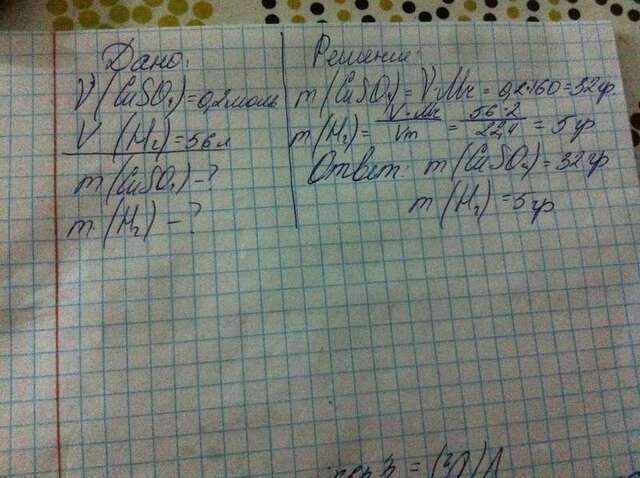 Дано:
ν(CuSO₄)=0,2моль
V(H₂)=56л
m(CuSO₄)-?
m(H₂)-?
Решение:
m(CuSO₄)=ν·Mr=0,2·160=32гр.
m(H₂)=V·Mr/Vm=56·2/22,4=5гр
Ответ: m(CuSO₄)=32гр
m(H₂)=5гр